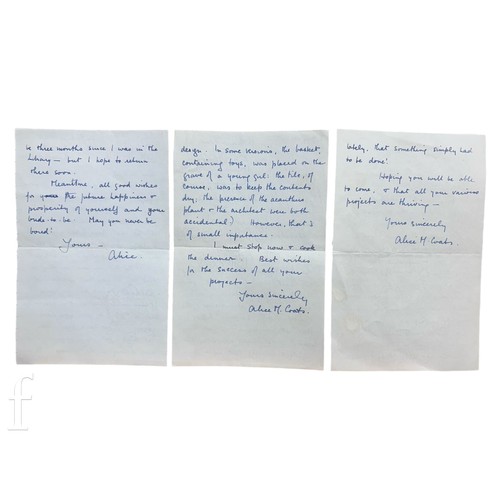 be three months since I was in the
Library — but I hope to return
there soon.
Meantime, all good wishes
for the future happiness &
prosperity of yourself and your
bride-to-be. May you never be
bored!
Yours —
Alice.
design. In some versions, the basket,
containing toys, was placed on the
grave of a young girl: the tile, of
course, was to keep the contents
dry. The presence of the acanthus
plant & the architect were both
accidental.) However, that is
of small importance.
I must stop now & cook
the dinner. Best wishes
for the success of all your
projects —
Yours sincerely
Alice M. Coats.
lately, that something simply had
to be done!
Hoping you will be able
to come, & that all your various
projects are thriving —
Yours sincerely
Alice M. Coats.
f